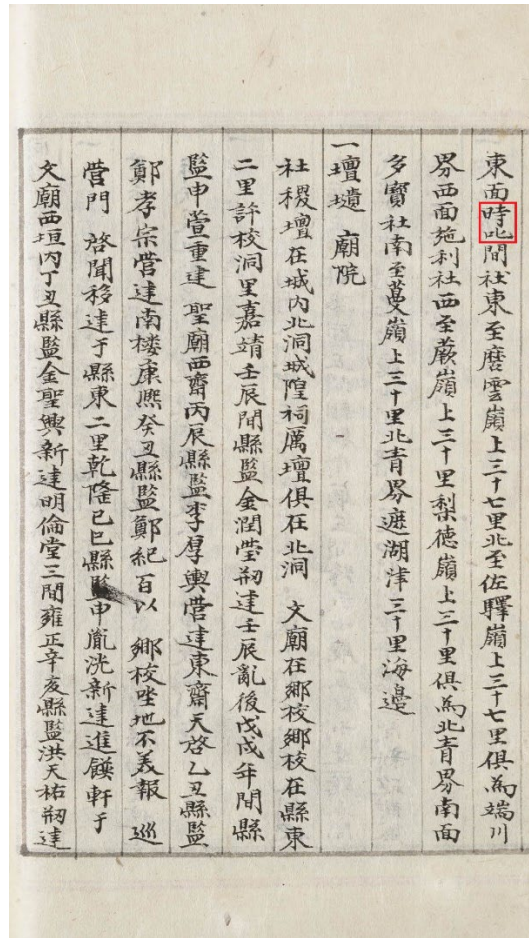 東面時叱間社東至磨雲嶺上三十七里北至佐驛嶺上三十七里俱為端川
界西面施利社西至蕨嶺上三十里梨德嶺上三十里俱為北青界南面
多寶社南至蔓嶺上三十里北青界遮湖津三十里海邊
一壇壝 廟院
社稷壇在城內北洞城隍祠厲壇俱在北洞 文廟在鄉校鄉校在縣東
二里許校洞里嘉靖壬辰間縣監金潤瑩刱建壬辰亂後戊戌年間縣
監申萱重建 聖廟西齋丙辰縣監李厚輿營建東齋天啓乙丑縣監
鄭孝宗營建南楼康熙癸丑縣監鄭紀百以 鄉校坐地不美報 巡
營門 啓聞移建于縣東二里乾隆己巳縣監申胤洸新建進饌軒于
文廟西垣內丁丑縣監金聖興新建明倫堂三間雍正辛亥縣監洪天祐刱建